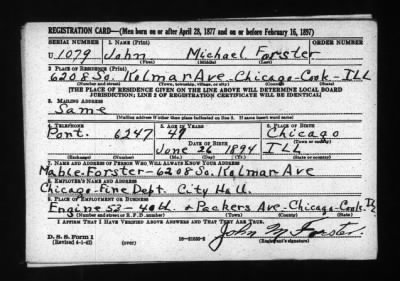 REGISTRATION CARD—(Men born on or after April 28, 1877 and on or before February 16, 1897)
SERIAL NUMBER 1. NAME (Print) ORDER NUMBER
U 1079 John Michael Forster
(First) (Middle) (Last)
2. PLACE OF RESIDENCE (Print)
6208 So. Kolmar Ave - Chicago - Cook - ILL
(Number and street) (Town, township, village, or city) (County) (State)
[THE PLACE OF RESIDENCE GIVEN ON THE LINE ABOVE WILL DETERMINE LOCAL BOARD
JURISDICTION; LINE 2 OF REGISTRATION CERTIFICATE WILL BE IDENTICAL]
3. MAILING ADDRESS
Same
(Mailing address if other than place indicated on line 2. If same insert word same)
4. TELEPHONE 5. AGE IN YEARS 6. PLACE OF BIRTH
Port. 6247 Chicago
DATE OF BIRTH (Town or county)
June 26 1894 ILL
(Exchange) (Number) (Mo.) (Day) (Yr.) (State or country)
7. NAME AND ADDRESS OF PERSON WHO WILL ALWAYS KNOW YOUR ADDRESS
Mable Forster - 6208 So. Kolmar Ave
8. EMPLOYER'S NAME AND ADDRESS
Chicago - Fire Dept. City Hall.
9. PLACE OF EMPLOYMENT OR BUSINESS
Engine 53 - 40th. & Packers Ave - Chicago - Cook - Ill
(Number and street or R. F. D. number) (Town) (County) (State)
I AFFIRM THAT I HAVE VERIFIED ABOVE ANSWERS AND THAT THEY ARE TRUE.
D. S. S. Form 1 John M Forster
(Revised 4-1-42) (over) (Registrant's signature)